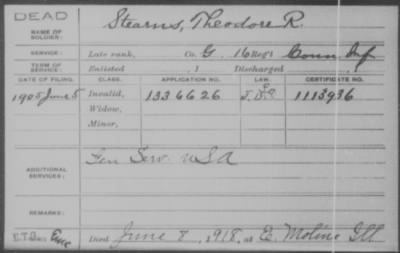 DEAD
NAME OF SOLDIER: Stearns, Theodore R.
SERVICE: Late rank, Co. G 16 Reg't Conn Inf
TERM OF SERVICE: Enlisted , 1 Discharged , 1
DATE OF FILING. CLASS. APPLICATION NO. LAW. CERTIFICATE NO.
1905 June 5 Invalid, 1336626 1113936
Widow,
Minor,
ADDITIONAL SERVICES: Gen Serv. USA
REMARKS:
Died June 8, 1918, at E. Moline Ill